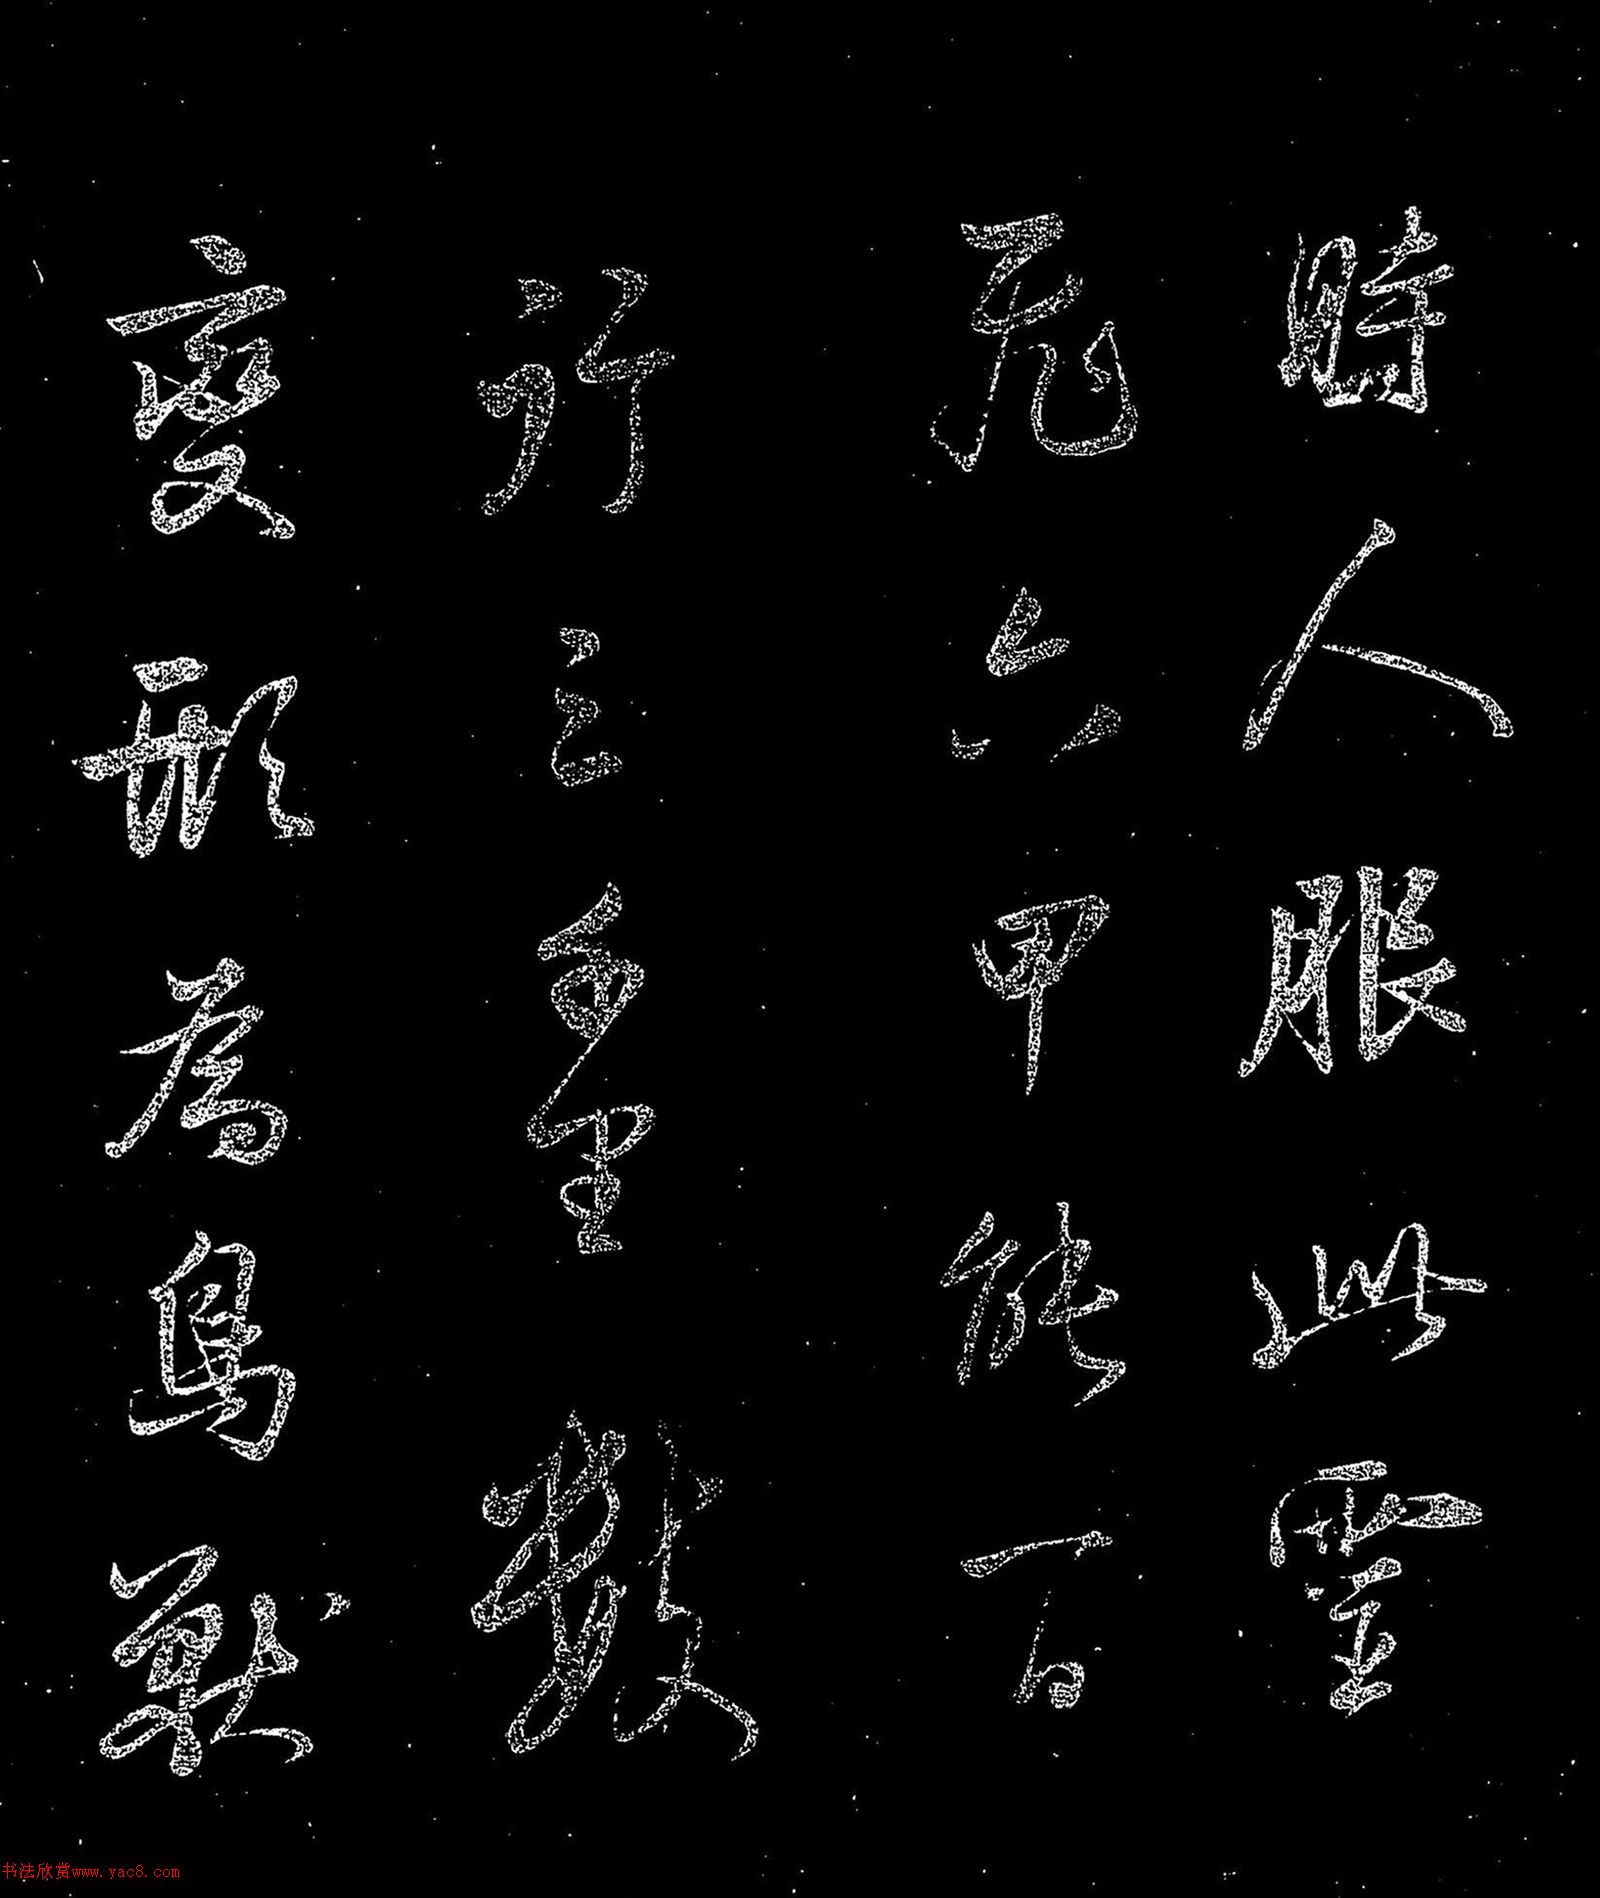 時人服此靈
飛六甲能一日
行三百里數
變形為鳥獸
书法欣赏www.yac8.com